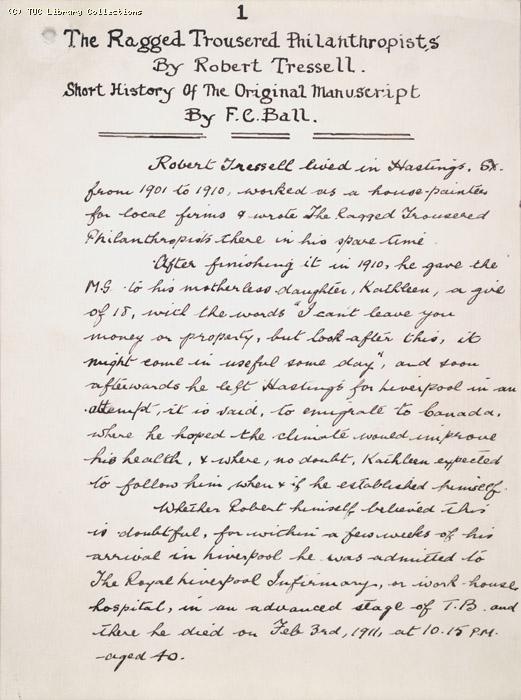 (C) TUC Library Collections
1
The Ragged Trousered Philanthropists
By Robert Tressell.
Short History Of The Original Manuscript
By F.C. Ball.
Robert Tressell lived in Hastings, Sx.
from 1901 to 1910, worked as a house-painter
for local firms & wrote The Ragged Trousered
Philanthropists there in his spare time.
After finishing it in 1910, he gave the
M.S. to his motherless daughter, Kathleen, a girl
of 18, with the words "I can't leave you
money or property, but look after this, it
might come in useful some day", and soon
afterwards he left Hastings for Liverpool in an
attempt, it is said, to emigrate to Canada,
where he hoped the climate would improve
his health, & where, no doubt, Kathleen expected
to follow him when & if he established himself.
Whether Robert himself believed this
is doubtful, for within a few weeks of his
arrival in Liverpool he was admitted to
The Royal Liverpool Infirmary, or work-house
hospital, in an advanced stage of T.B. and
there he died on Feb 3rd, 1911, at 10.15 P.M.
-aged 40.